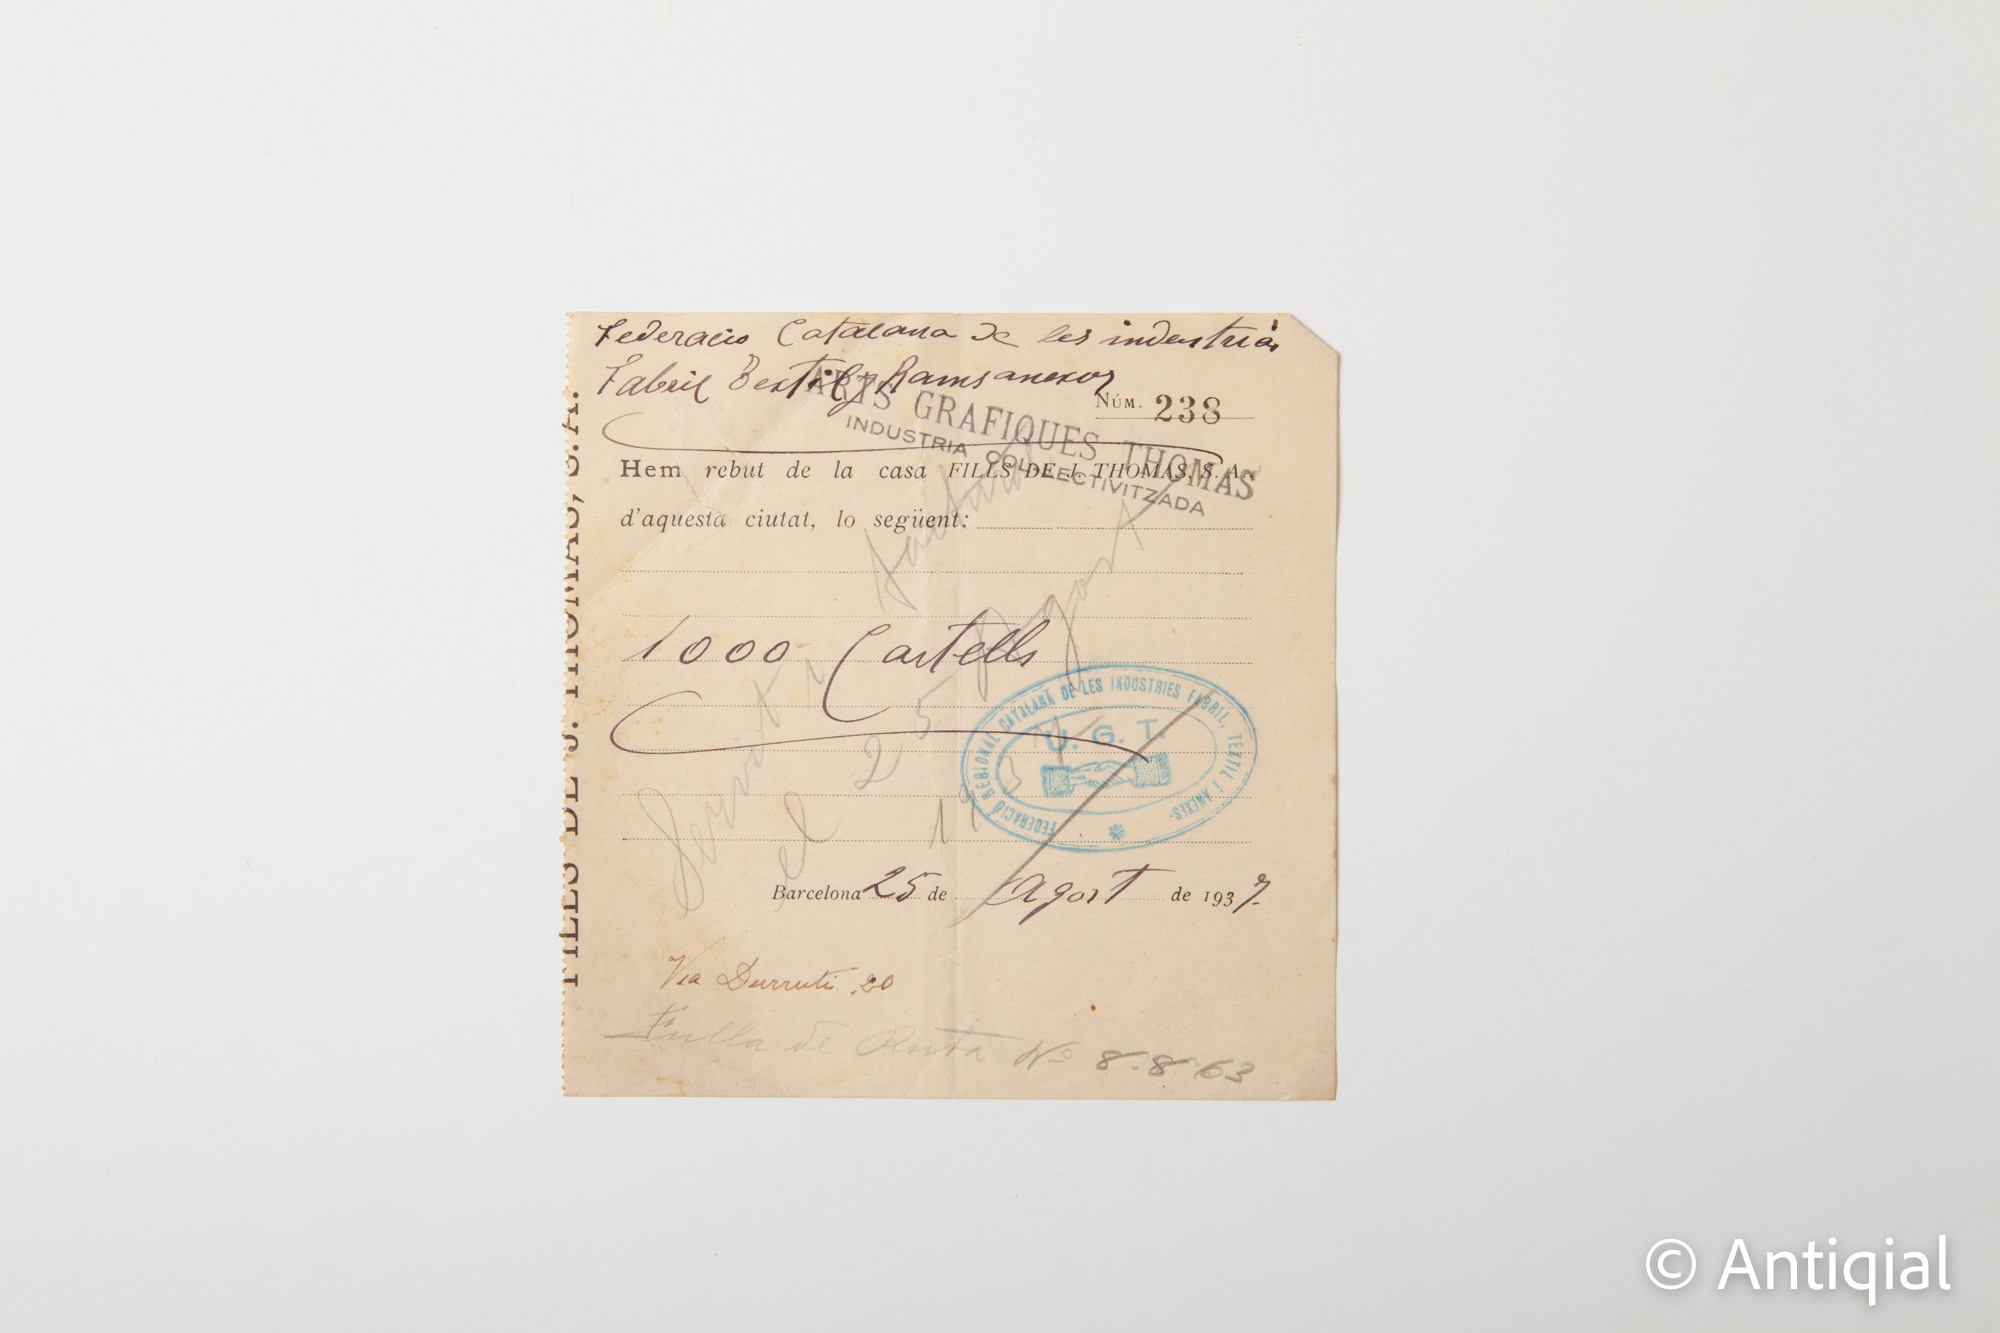 Federacio Catalana de les industrias
Fabril Textil y Ramsanexos
ARTS GRAFIQUES THOMAS
INDUSTRIA COL·LECTIVITZADA
NÚM. 238
Hem rebut de la casa FILLS DE J. THOMAS, S. A.
d'aquesta ciutat, lo següent:
1000 Cartells
FEDERACIÓ REGIONAL CATALANA DE LES INDUSTRIES FABRIL, TEXTIL I ANEXES.
U. G. T.
Servit
el 25 Agost
1937
Barcelona 25 de Agost de 1937.
Via Durruti 20
Fulla de Ruta Nº 8.863
FILLS DE J. THOMAS, S. A.
© Antiqial